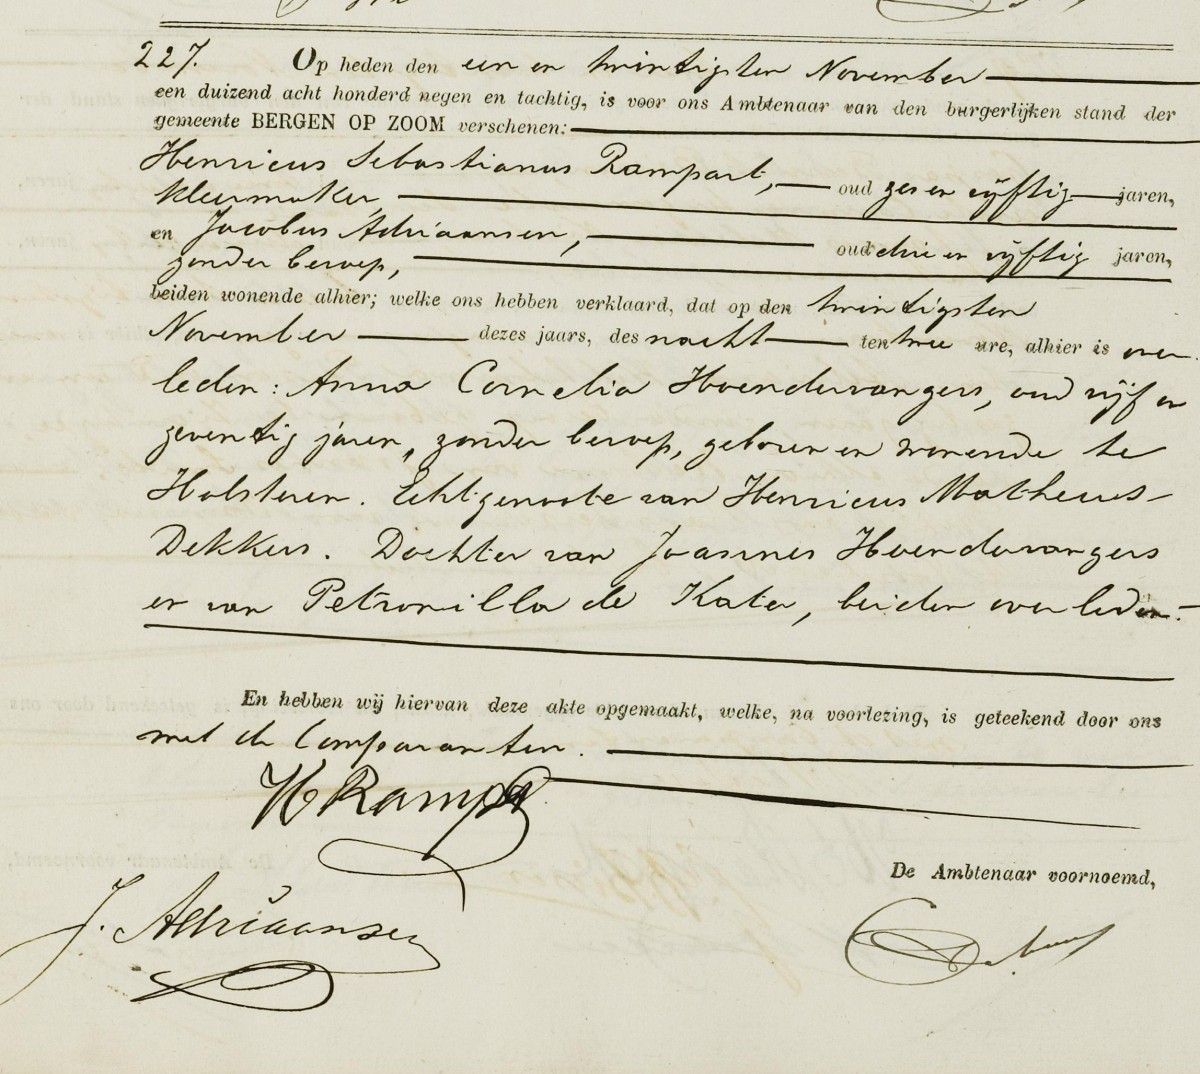 227. Op heden den een en twintigsten November
een duizend acht honderd negen en tachtig, is voor ons Ambtenaar van den burgerlijken stand der
gemeente BERGEN OP ZOOM verschenen:
Henricus Sebastianus Rampart, oud zes en vijftig jaren,
kleermaker,
en Jacobus Adriaansen, oud drie en vijftig jaren,
zonder beroep,
beiden wonende alhier; welke ons hebben verklaard, dat op den twintigsten
November dezes jaars, des nachts ten twee ure, alhier is over
leden: Anna Cornelia Hoendervangers, oud vijf en
zeventig jaren, zonder beroep, geboren en wonende te
Halsteren. Echtgenoote van Henricus Matheus
Dekkers. Dochter van Joannes Hoendervangers
en van Petronilla de Kater, beiden overleden.
En hebben wij hiervan deze akte opgemaakt, welke, na voorlezing, is geteekend door ons
met de Comparanten.
H Rampart
De Ambtenaar voornoemd,
J. Adriaansen